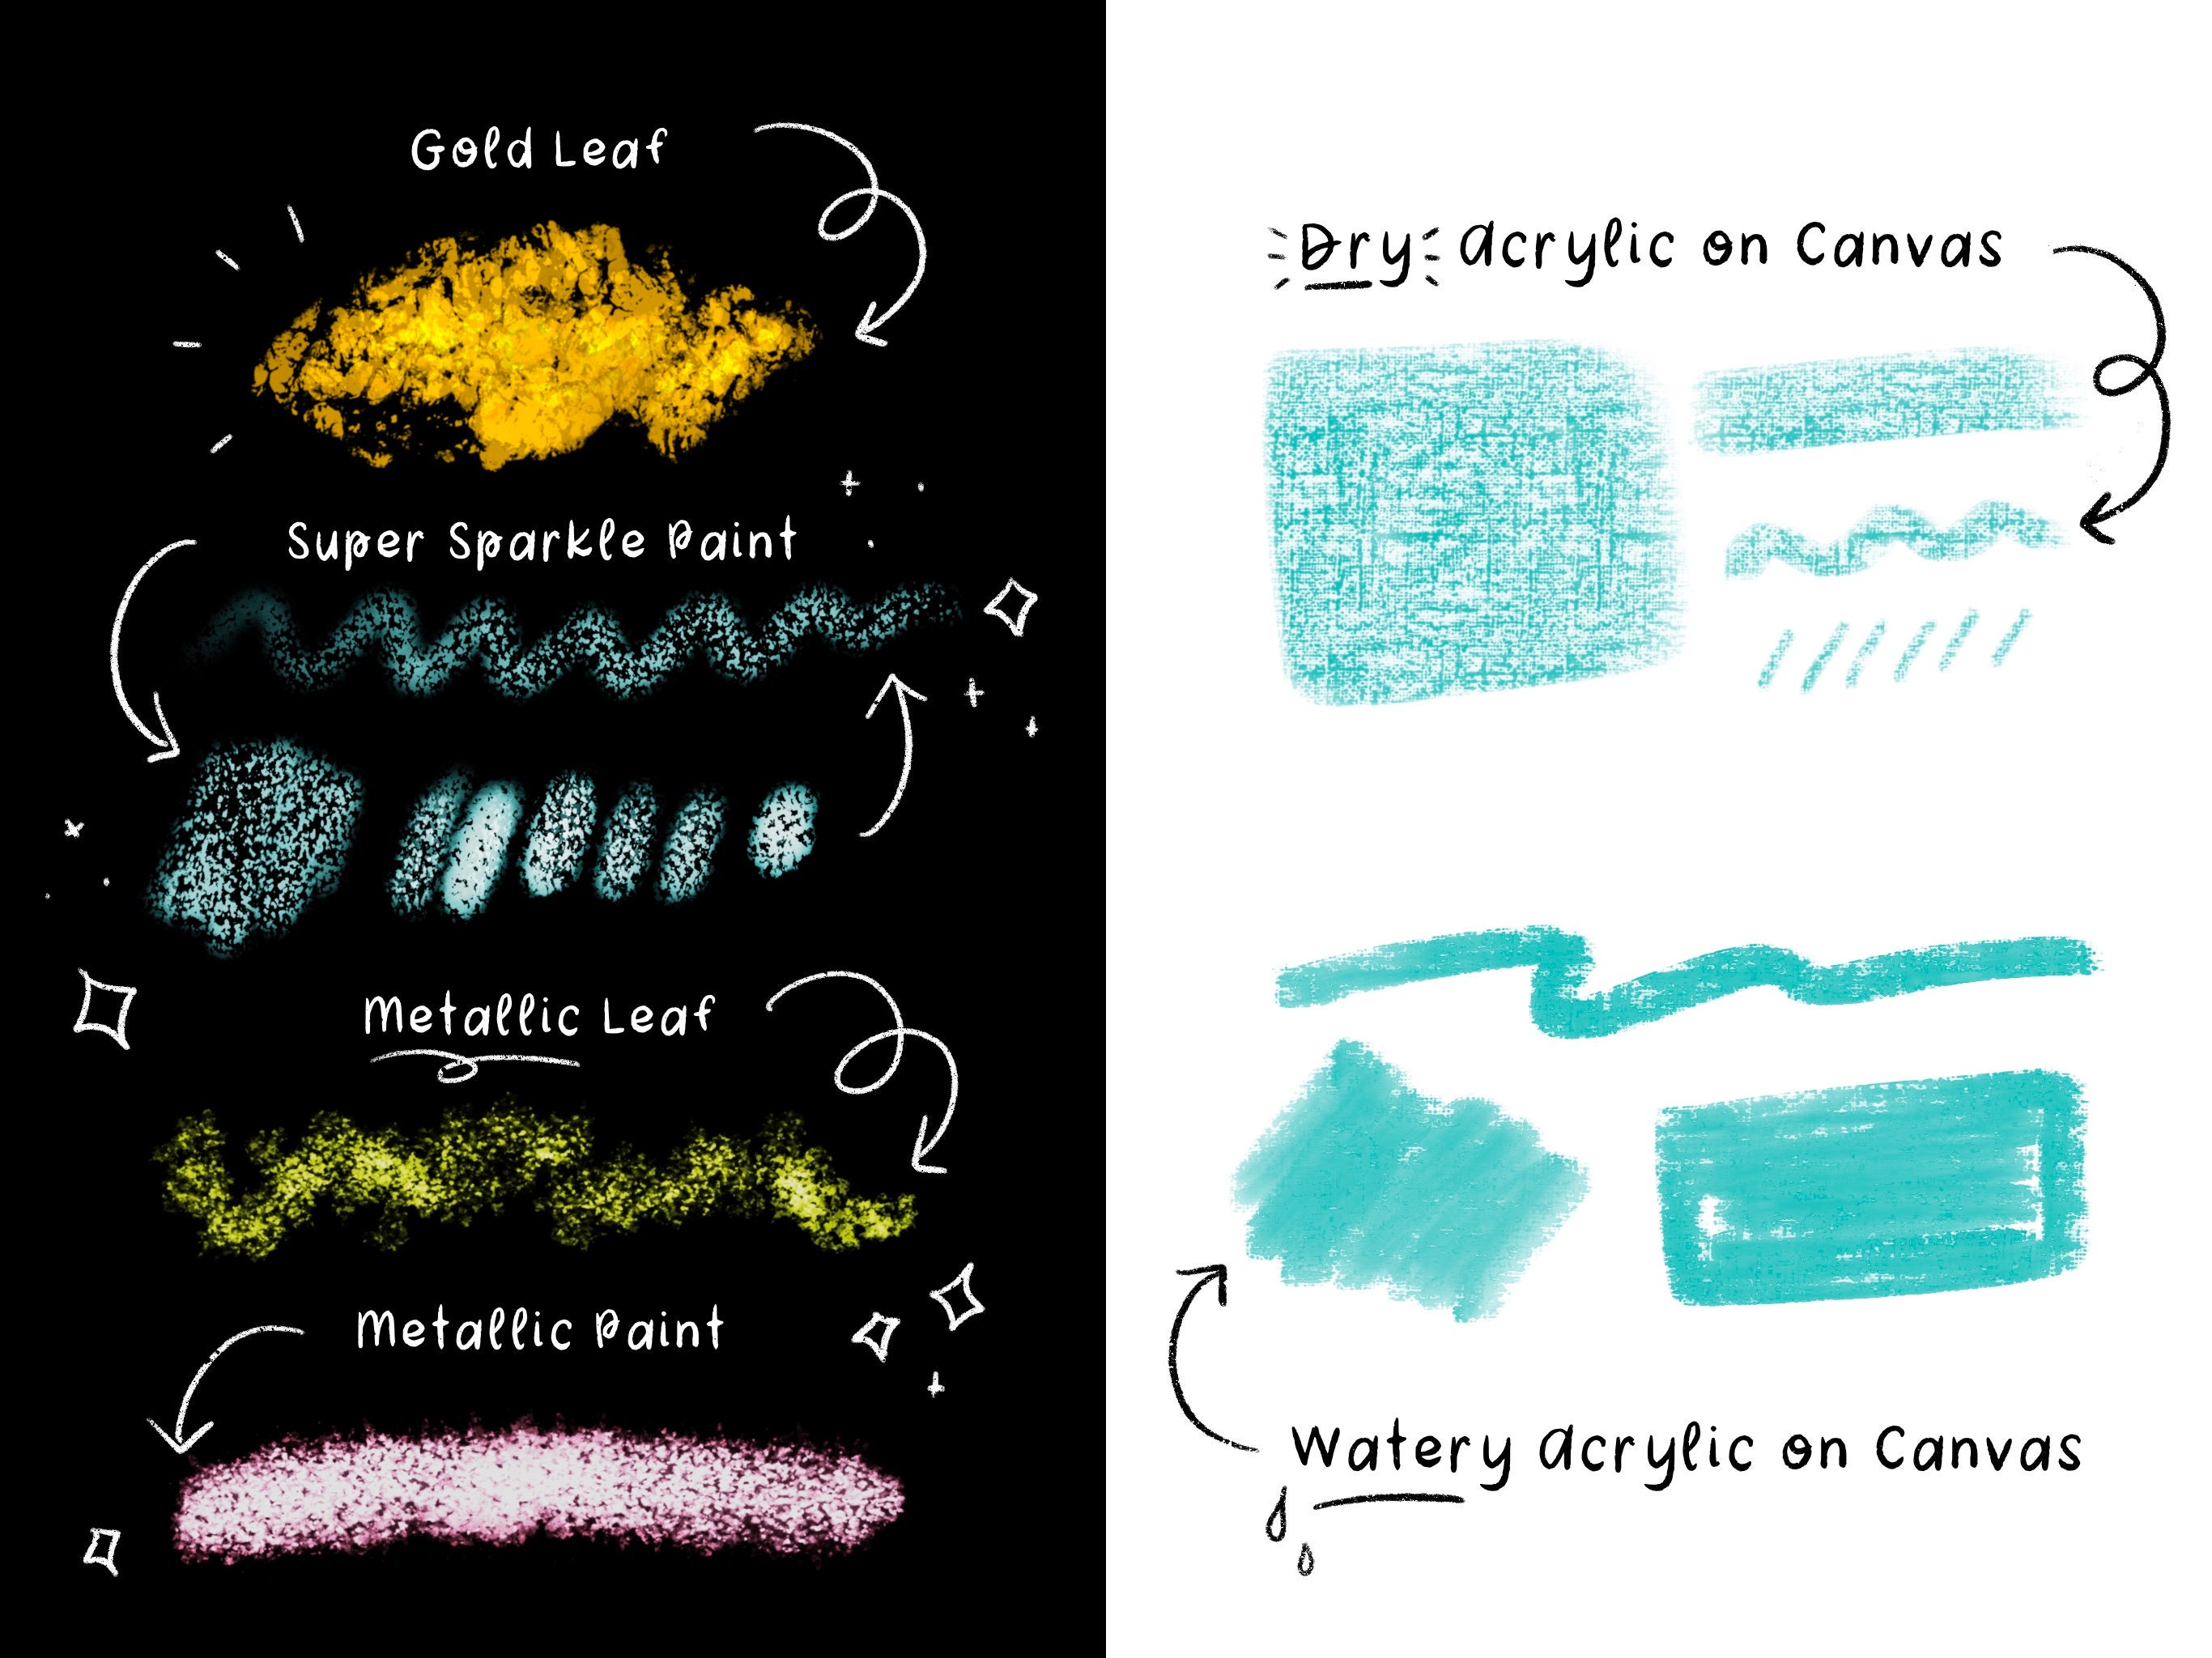 Gold Leaf
Super Sparkle Paint
Metallic Leaf
Metallic Paint
Dry Acrylic on Canvas
Watery Acrylic on Canvas